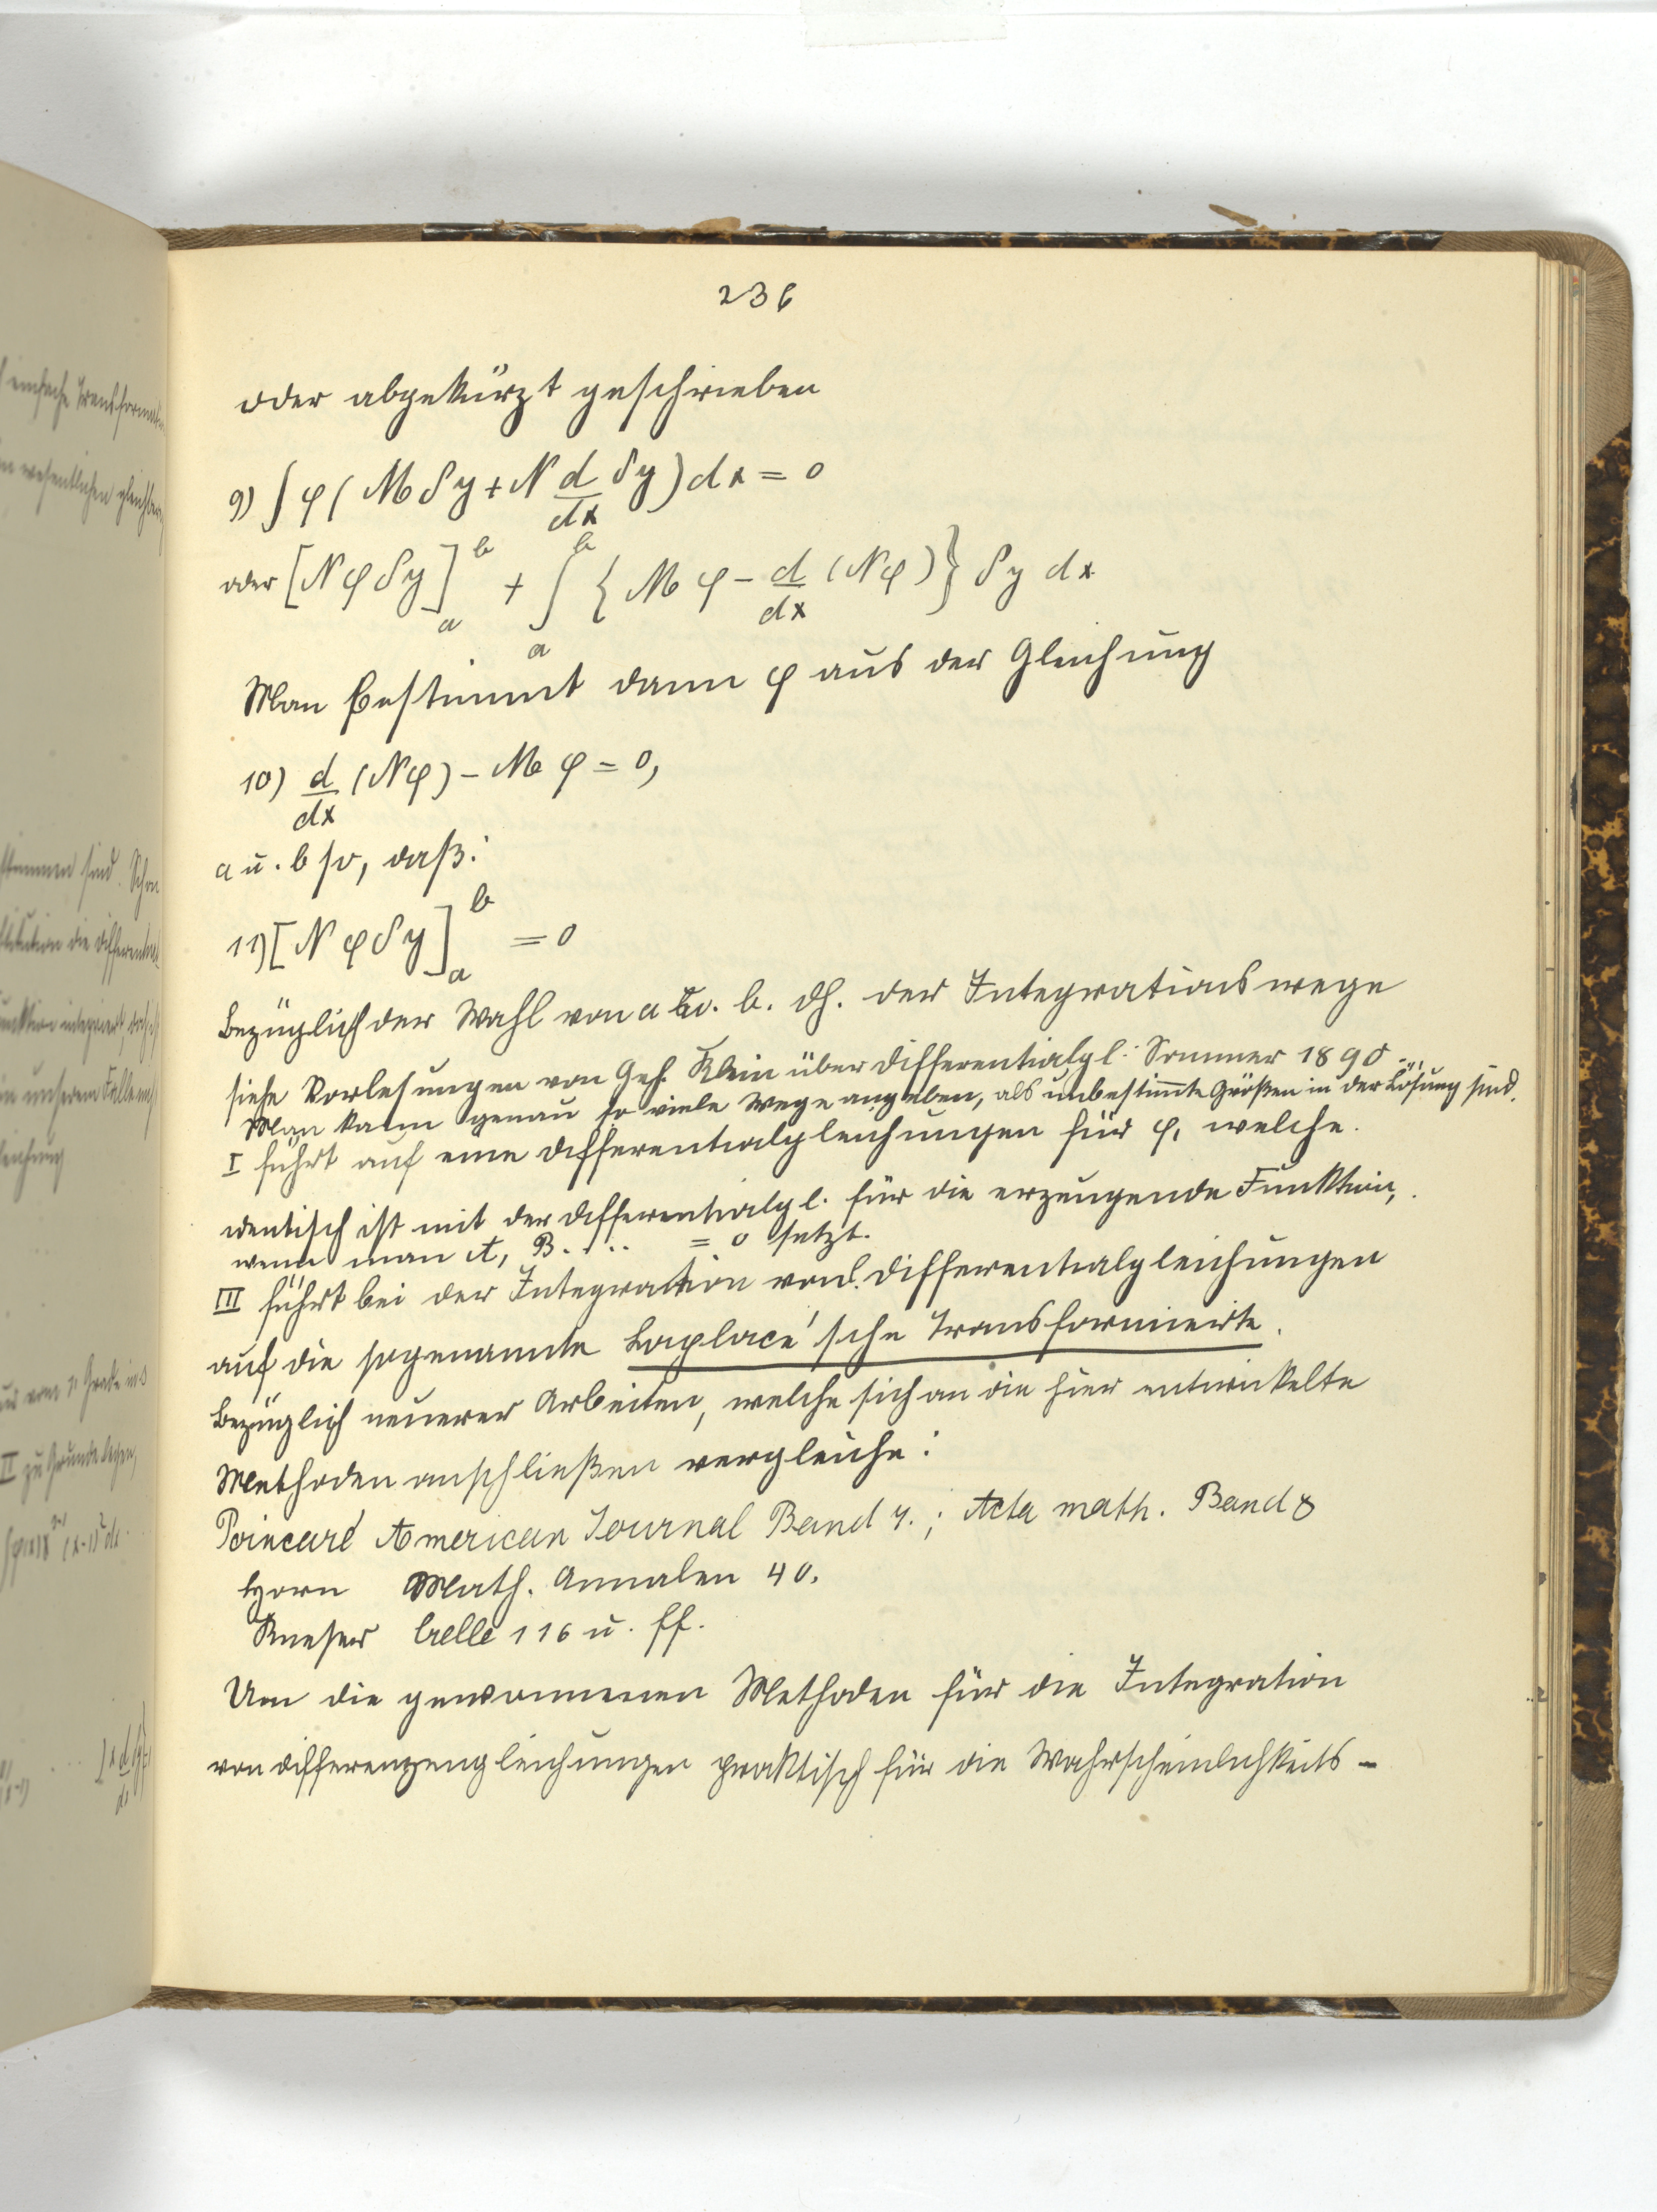 236
oder abgekürzt geschrieben
9) ∫ φ ( M δy + N d/dx δy ) dx = 0
oder [ N φ δy ]_a^b + ∫_a^b { M φ − d/dx (Nφ) } δy dx
Man bestimmt dann φ aus der Gleichung
10) d/dx (Nφ) − M φ = 0,
a u. b so, daß:
11) [ N φ δy ]_a^b = 0
Bezüglich der Wahl von a u. b. dh. der Integrationswege
siehe Vorlesungen von Geh. Klein über Differentialgl. Sommer 1890.
Man kann genau so viele Wege angeben, als unbestimmte Größen in der Lösung sind.
I führt auf eine Differentialgleichungen für φ, welche
identisch ist mit der Differentialgl. für die erzeugende Funktion,
wenn man A, B.... = 0 setzt.
III führt bei der Integration von l. Differentialgleichungen
auf die sogenannte Laplace'sche Transformierte.
Bezüglich neuerer Arbeiten, welche sich an die hier entwickelte
Methoden anschließen vergleiche:
Poincaré American Journal Band 7.; Acta math. Band 8
Horn Math. Annalen 40.
Kneser Crelle 116 u. ff.
Um die gewonnenen Methoden für die Integration
von Differenzengleichungen praktisch für die Wahrscheinlichkeits-